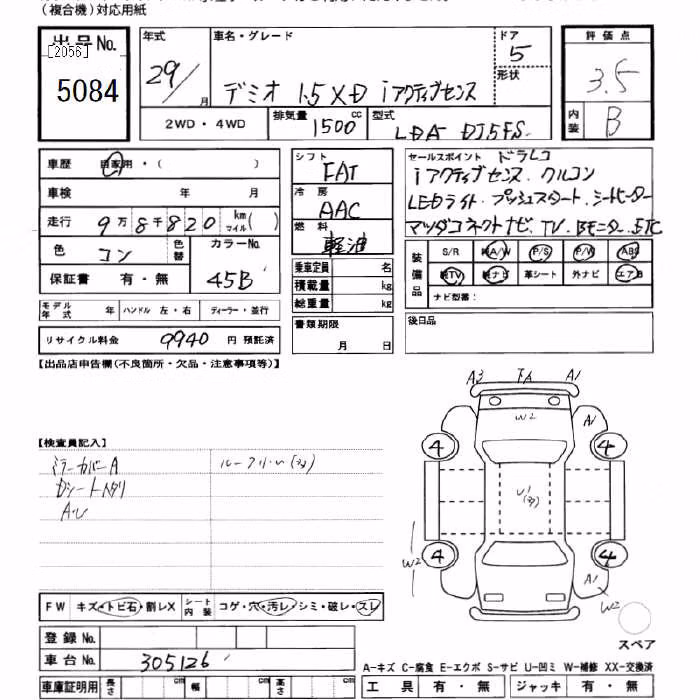 (複合機)対応用紙
出品No. [2056]
5084
年式 29/ 月
車名・グレード デミオ 1.5 XD iアクティブセンス
ドア 5
形状
評価点 3.5
内装 B
2WD・4WD
排気量 1500 cc
型式 LDA DJ5FS
車歴 自家用・( )
車検 年 月
走行 9万8千820 km マイル( )
色 コン 色替 カラーNo. 45B
保証書 有・無
モデル年式 年 ハンドル 左・右 ディーラー・並行
リサイクル料金 9940 円 預託済
シフト FAT
冷房 AAC
燃料 軽油
乗車定員 名
積載量 kg
総重量 kg
書類期限 月 日
セールスポイント ドラレコ
iアクティブセンス クルコン
LEDライト・プッシュスタート・シートヒーター
マツダコネクトナビ・TV・Bモニター・ETC
装備品 S/R 純A/W P/S P/W ABS
純TV 純ナビ 革シート 外ナビ エアB
ナビ型番:
後日品
【出品店申告欄(不良箇所・欠品・注意事項等)】
【検査員記入】
ミラーカバーA
Dシートヘタリ
ルーフ
A3 A1
W2 A1
4 4
U1
4 4
W2 A1
W2
スペア
FW キズ・トビ石・割レX シート内装 コゲ・穴・汚レ・シミ・破レ・スレ
登録No.
車台No. 305126
車庫証明用 長さ cm 幅 cm 高さ cm
A-キズ C-腐食 E-エクボ S-サビ U-凹ミ W-補修 XX-交換済
工具 有・無 ジャッキ 有・無